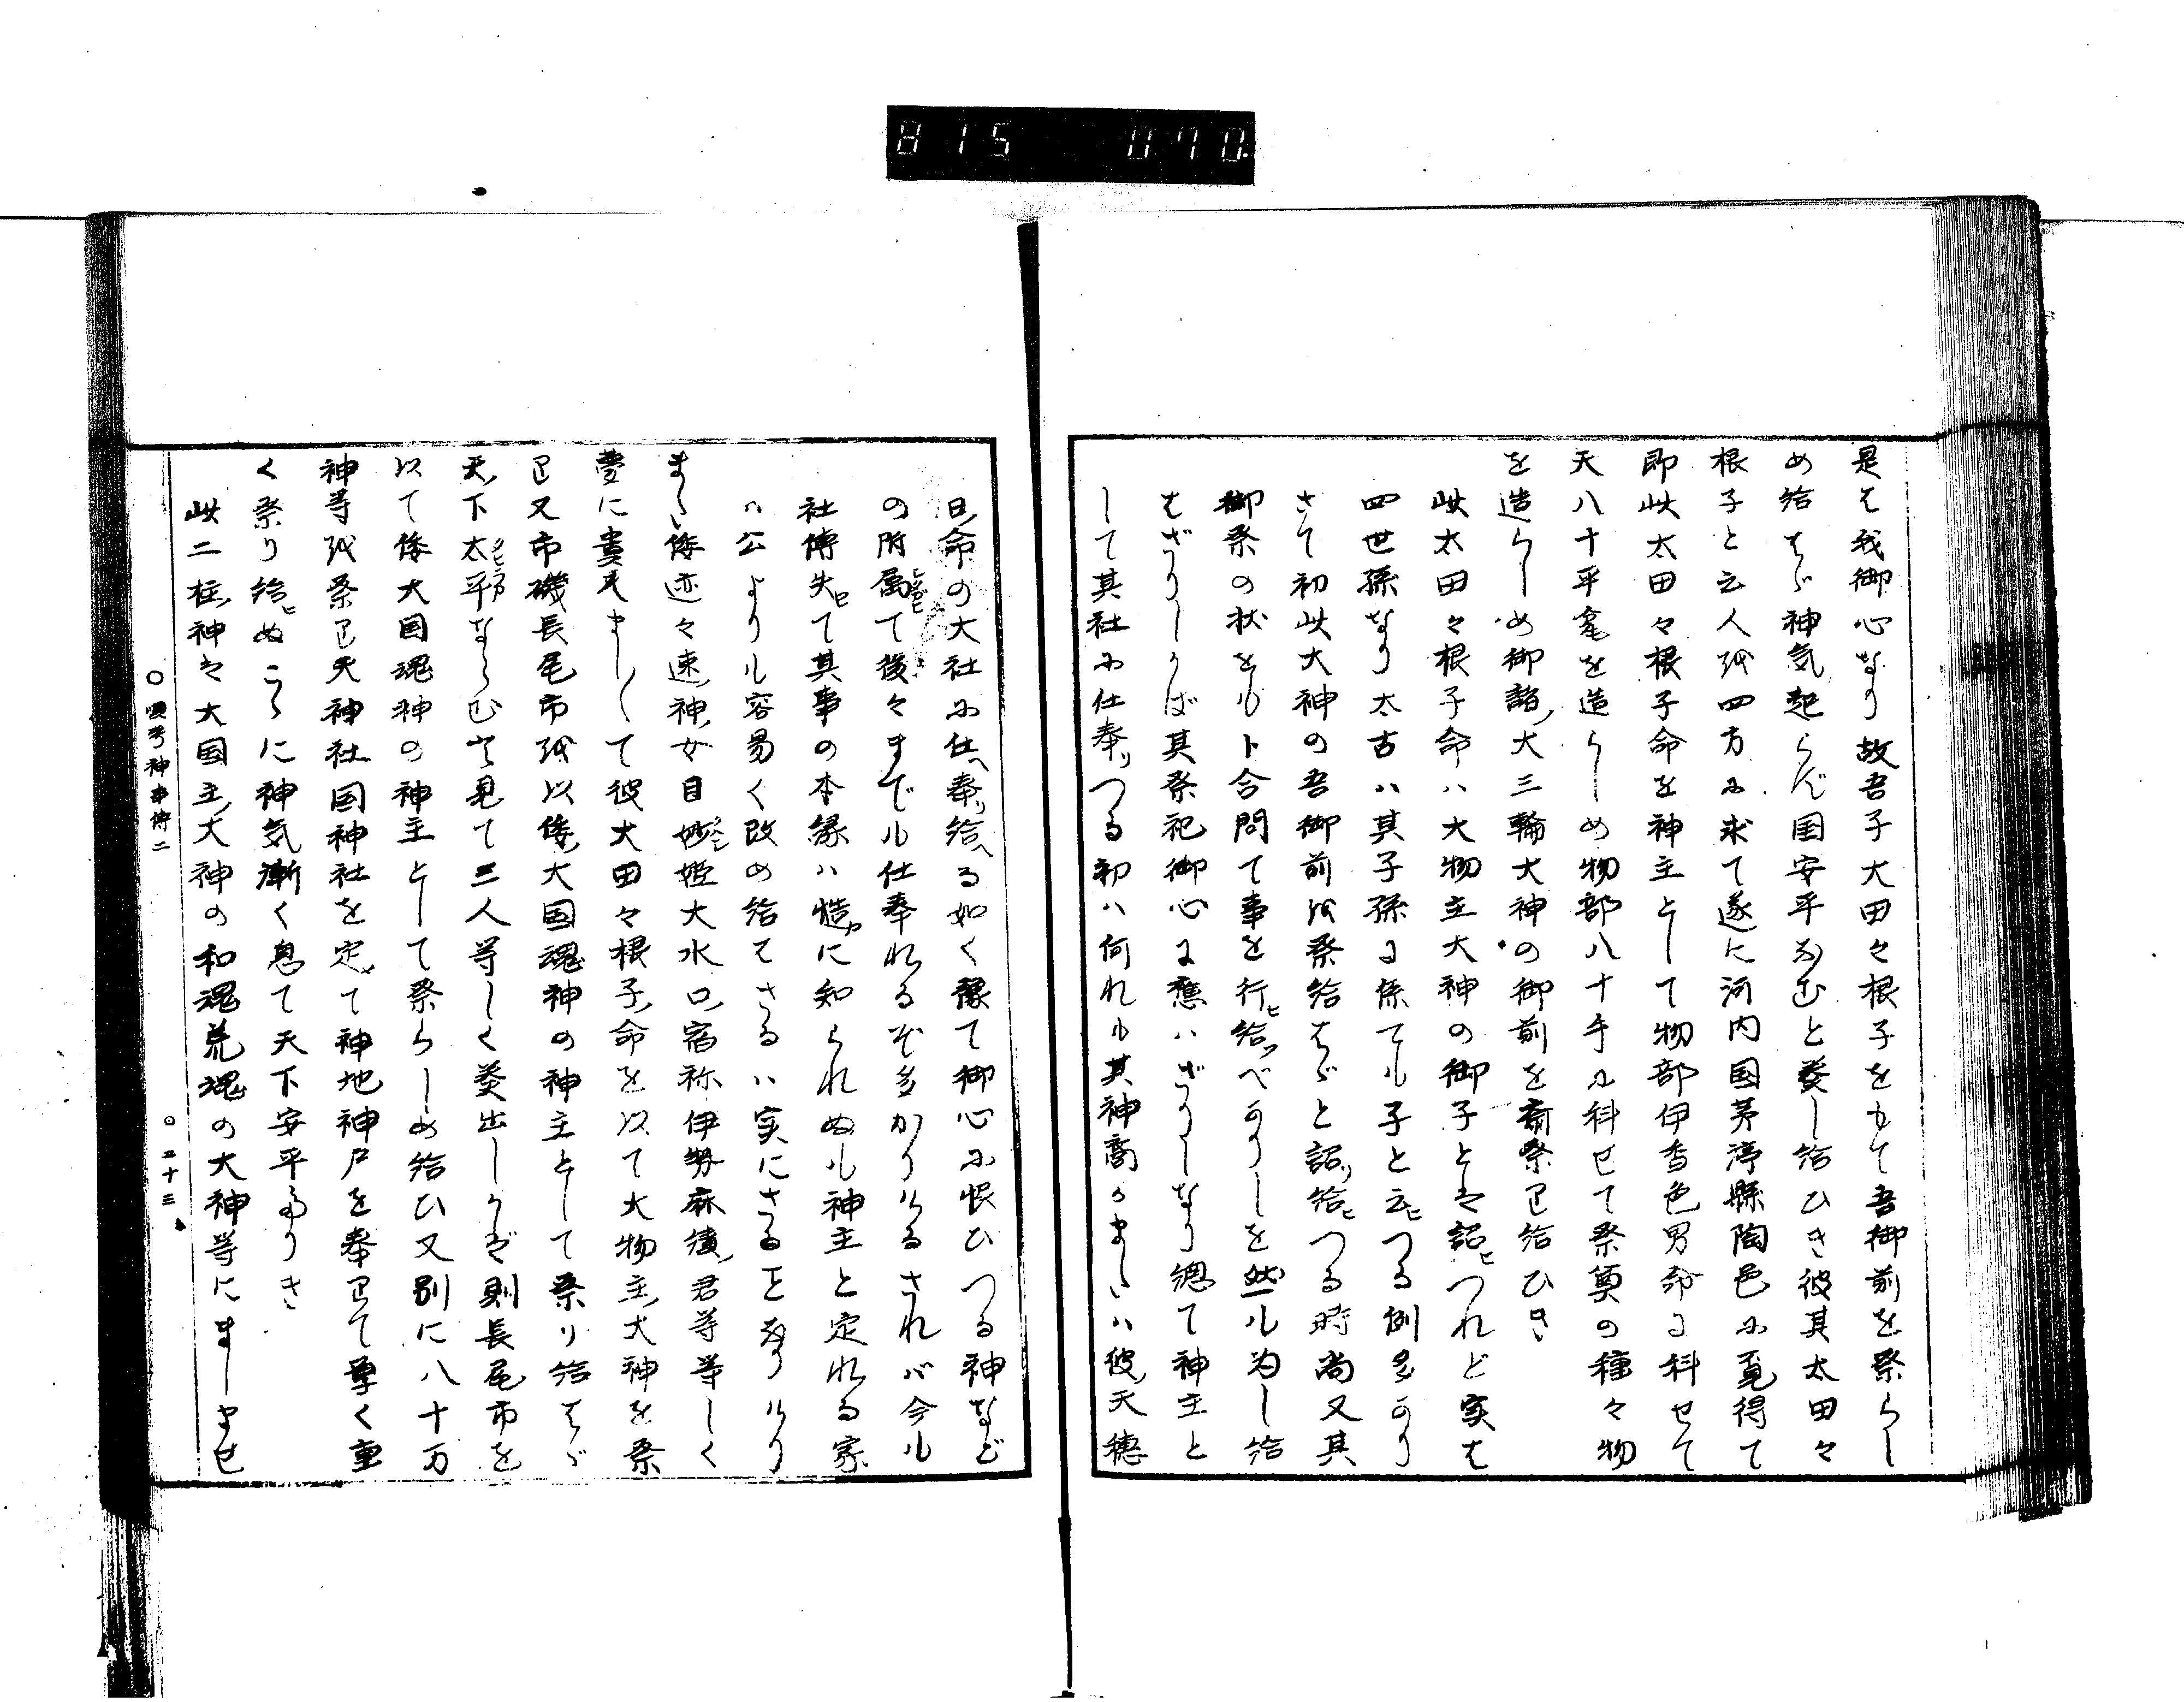 815 070
是は我御心なり故吾子大田々根子をもて吾御前を祭らし
め給はゞ神気起らべ国安平なむと誨し給ひき彼其太田々
根子と云人を四方に求て遂に河内国茅渟縣陶邑に覓得て
即此太田々根子命を神主として物部伊香色男命に科せて
天八十平瓮を造らしめ物部八十手に科せて祭奠の種々物
を造らしめ御諸ノ大三輪大神の御前を斎祭り給ひき
此太田々根子命ハ大物主大神の御子とは詔ヒつれど実は
四世孫なり太古ハ其子孫に係ても子と云ヒつる例多かり
さて初此大神の吾御前を祭給はゞと詔リ給ヒつる時尚又其
御祭の状をも卜合問て事を行ヒ給フべかりしを然も為し給
はざりしかば其祭祀御心に應ハざりしなり總て神主と
して其社に仕奉リつる初ハ何れも其神裔かまたハ彼ノ天穂
日ノ命の大社に仕ヘ奉リ給ヘる如く豫て御心に恨ひつる神など
の附属て後々までも仕奉れるぞ多かりけるされバ今も
社傳失ヒて其事の本縁ハ慥かに知られぬも神主と定れる家
ハ公よりも容易く改め給はざるハ実にさる事なりけり
また倭迹々速神ノ女目妙姫大水口ノ宿祢伊勢麻績ノ君等等しく
夢に貴ましまして彼大田々根子ノ命を以て大物主ノ大神を祭
り又市磯長尾市を以倭ノ大国魂神の神主として祭り給はゞ
天ノ下太平ならむと見て三人等しく奏出しかば則長尾市を
以て倭大国魂神の神主として祭らしめ給ひ又別に八十万
神等を祭り天神社国神社を定メて神地神戸を奉りて尊く重
く祭り給ヒぬこゝに神気漸く息て天下安平なりき
此二柱ノ神は大国主ノ大神の和魂荒魂の大神等にましませ
神事傳二
○二十三